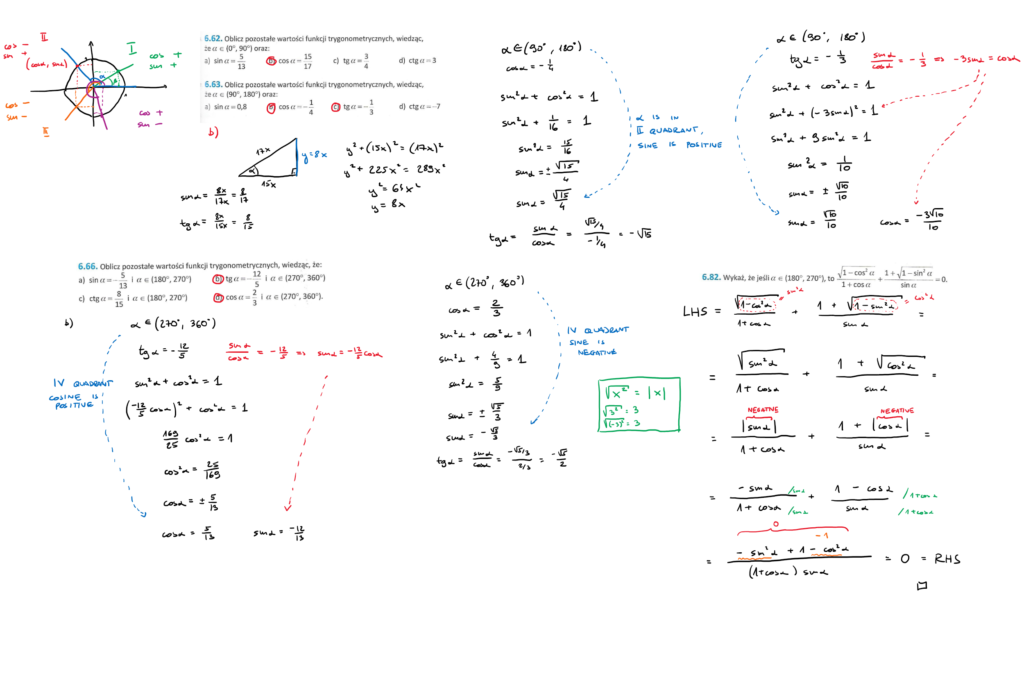 II
cos −
sin +
(cosα, sinα)
I
cos +
sin +
α
cos −
sin −
III
cos +
sin −
6.62. Oblicz pozostałe wartości funkcji trygonometrycznych, wiedząc,
że α ∈ (0°, 90°) oraz:
a) sin α = 5/13 b) cos α = 15/17 c) tg α = 3/4 d) ctg α = 3
6.63. Oblicz pozostałe wartości funkcji trygonometrycznych, wiedząc,
że α ∈ (90°, 180°) oraz:
a) sin α = 0,8 b) cos α = −1/4 c) tg α = −1/3 d) ctg α = −7
b)
17x
y = 8x
α
15x
y² + (15x)² = (17x)²
y² + 225x² = 289x²
y² = 64x²
y = 8x
sinα = 8x/17x = 8/17
tgα = 8x/15x = 8/15
α ∈ (90°, 180°)
cosα = −1/4
sin²α + cos²α = 1
sin²α + 1/16 = 1
sin²α = 15/16
sinα = ± √15/4
sinα = √15/4
tgα = sinα/cosα = (√15/4)/(−1/4) = −√15
α IS IN
II QUADRANT,
SINE IS POSITIVE
α ∈ (90°, 180°)
tgα = −1/3
sinα/cosα = −1/3 => −3sinα = cosα
sin²α + cos²α = 1
sin²α + (−3sinα)² = 1
sin²α + 9sin²α = 1
sin²α = 1/10
sinα = ± √10/10
sinα = √10/10 cosα = −3√10/10
6.66. Oblicz pozostałe wartości funkcji trygonometrycznych, wiedząc, że:
a) sin α = −5/13 i α ∈ (180°, 270°) b) tg α = −12/5 i α ∈ (270°, 360°)
c) ctg α = 8/15 i α ∈ (180°, 270°) d) cos α = 2/3 i α ∈ (270°, 360°).
b)
α ∈ (270°, 360°)
tgα = −12/5
sinα/cosα = −12/5 => sinα = −12/5 cosα
IV QUADRANT
COSINE IS
POSITIVE
sin²α + cos²α = 1
(−12/5 cosα)² + cos²α = 1
169/25 cos²α = 1
cos²α = 25/169
cosα = ± 5/13
cosα = 5/13 sinα = −12/13
α ∈ (270°, 360°)
cosα = 2/3
sin²α + cos²α = 1
sin²α + 4/9 = 1
sin²α = 5/9
sinα = ± √5/3
sinα = −√5/3
tgα = sinα/cosα = (−√5/3)/(2/3) = −√5/2
IV QUADRANT
SINE IS
NEGATIVE
√x² = |x|
√3² = 3
√(−3)² = 3
6.82. Wykaż, że jeśli α ∈ (180°, 270°), to √(1−cos² α)/(1+cos α) + (1+√(1−sin² α))/sin α = 0.
LHS = √(1−cos²α)/(1+cosα) + (1+√(1−sin²α))/sinα =
= sin²α
= cos²α
= √(sin²α)/(1+cosα) + (1+√(cos²α))/sinα =
NEGATIVE NEGATIVE
= |sinα|/(1+cosα) + (1+|cosα|)/sinα =
= −sinα/(1+cosα) /sinα /sinα + (1−cosα)/sinα /1+cosα /1+cosα
0
−1
= (−sin²α + 1 − cos²α)/((1+cosα) sinα) = 0 = RHS